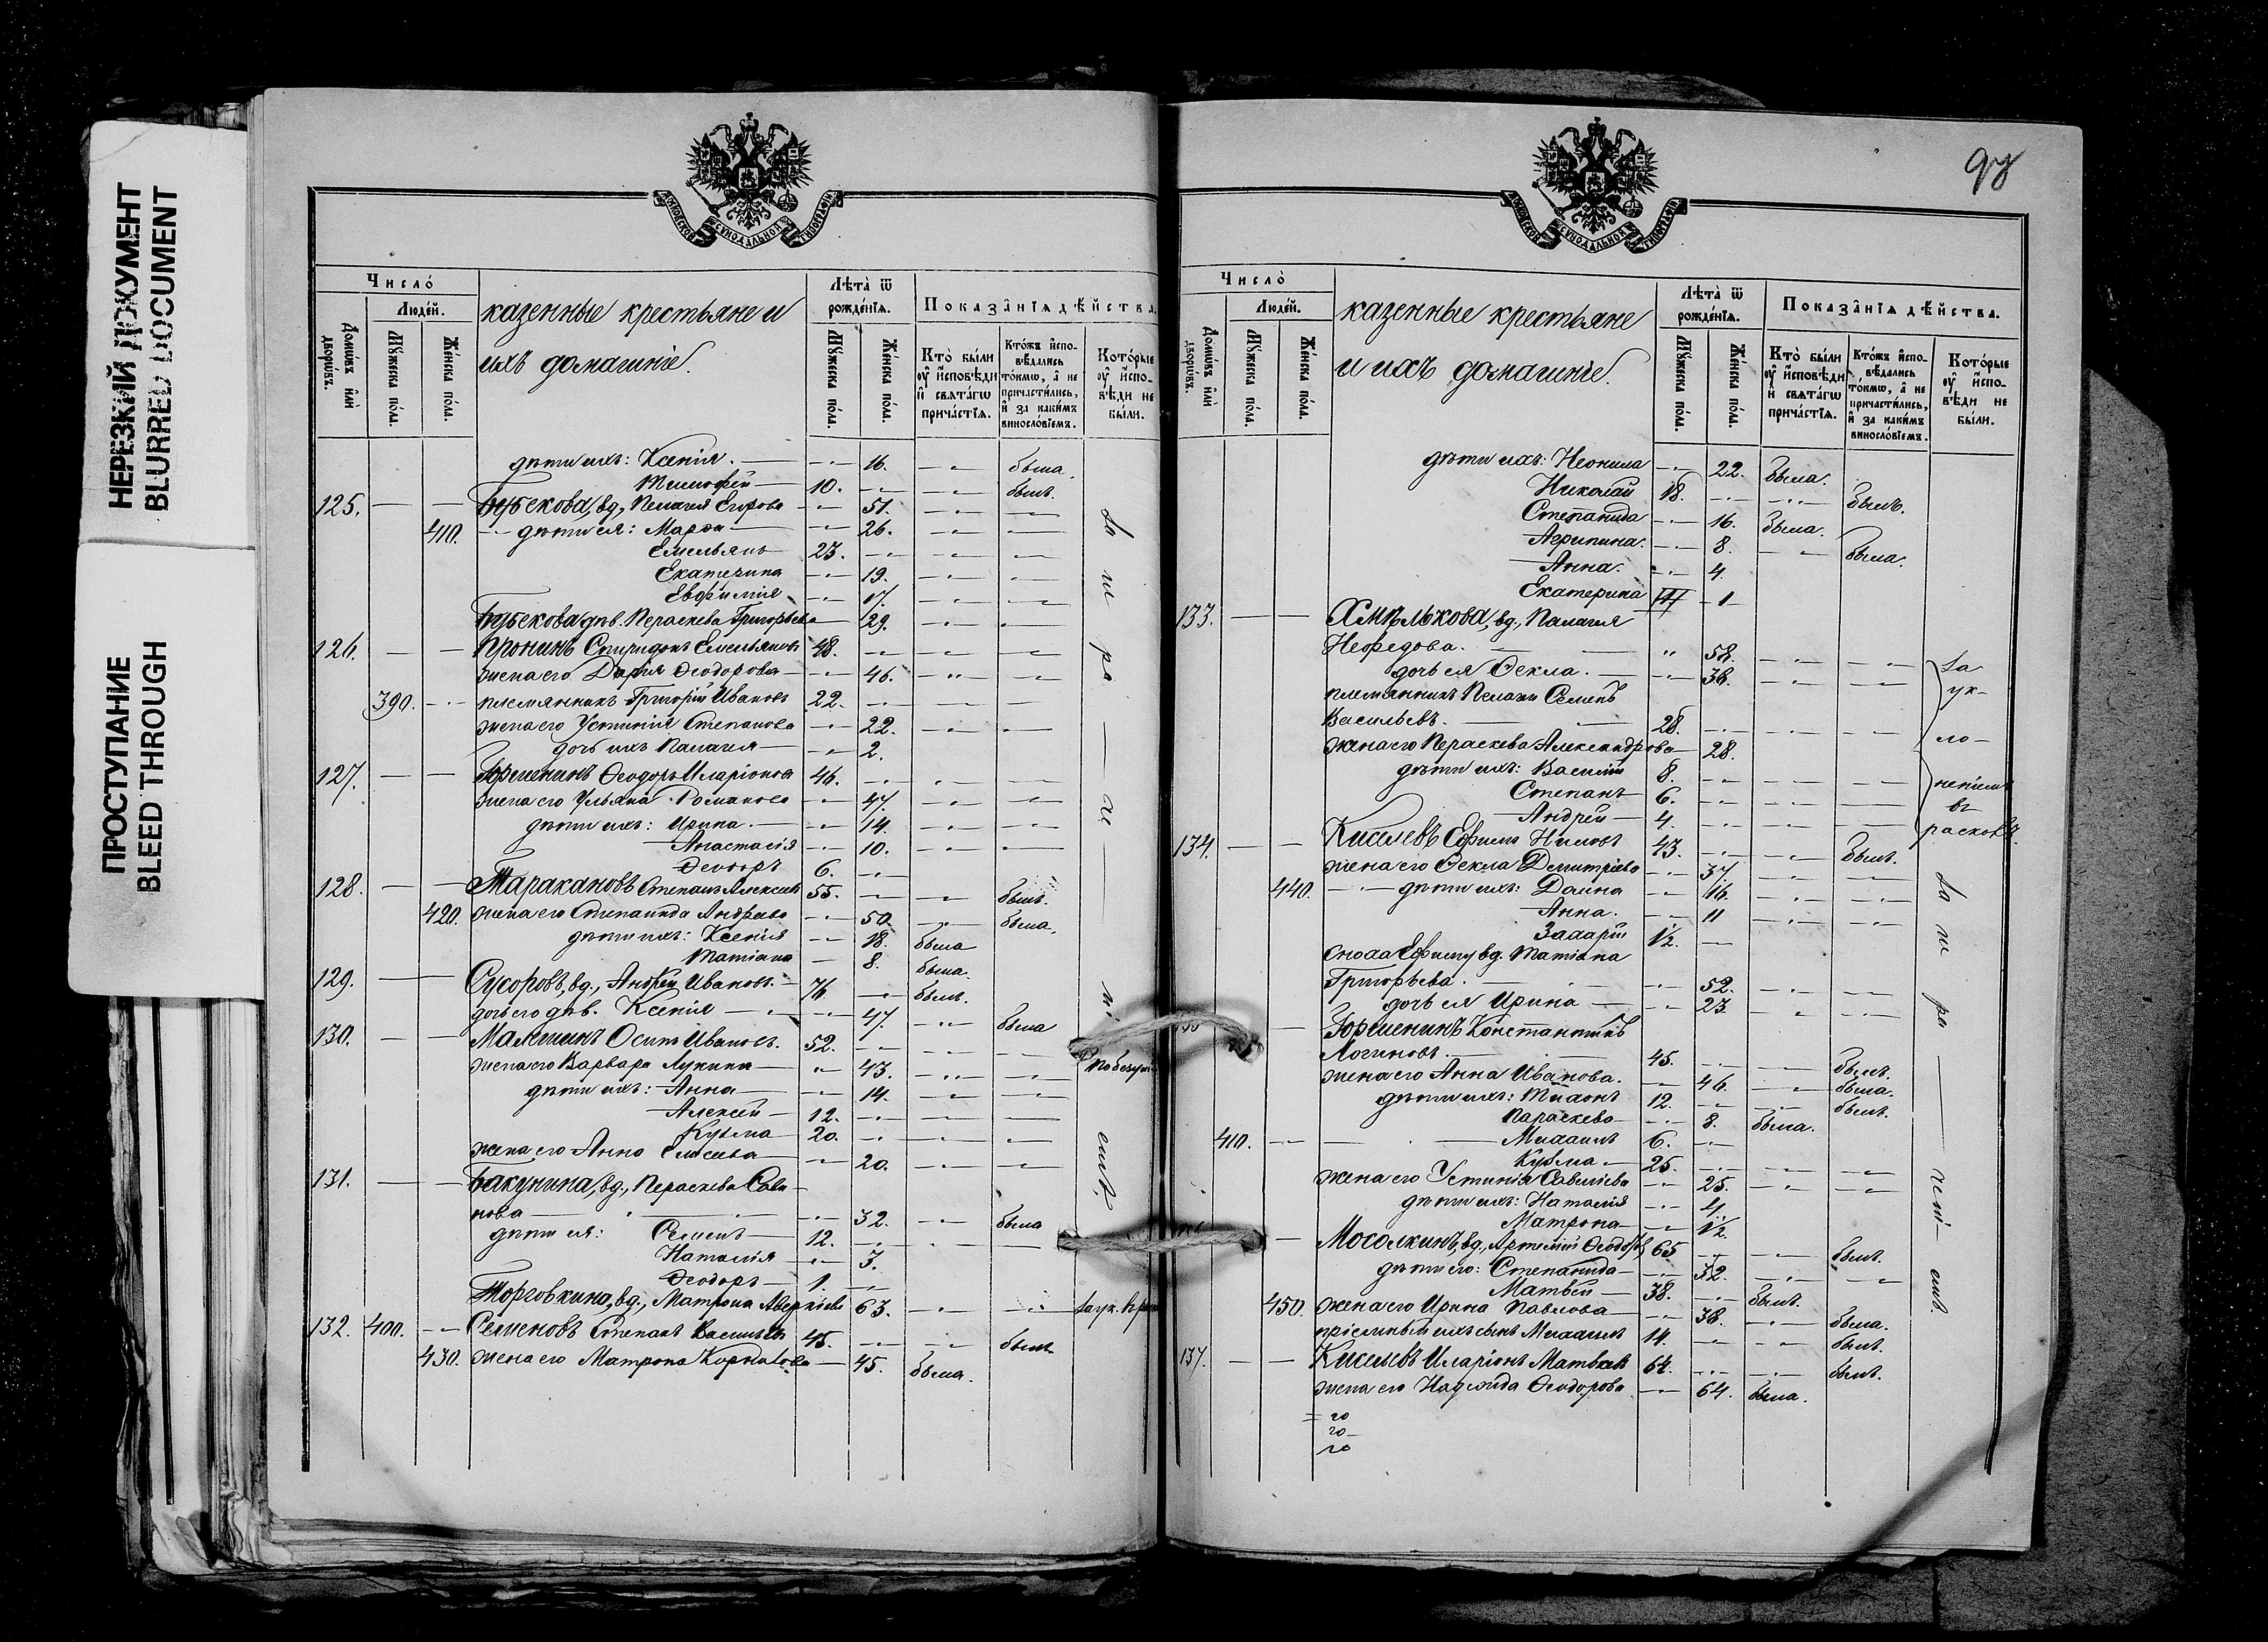 НЕРЕЗКИЙ ДОКУМЕНТ
BLURRED DOCUMENT
ПРОСТУПАНИЕ
BLEED THROUGH
МОСКОВСКОЙ СѴНОДАЛЬНОЙ ТИПОГРАФІИ
Число́
Люде́й.
Домѡ́въ и҆лѝ дворѡ́въ.
Мꙋ́жеска по́ла.
Же́нска по́ла.
казенные крестьяне и
ихъ домашніе.
Лѣ́та ѿ рожде́нїѧ.
Мꙋ́жеска по́ла.
Же́нска по́ла.
Показа̑нїѧ дѣ́йства
Кто̀ были оу҆ и҆сповѣди и҆ свѧта́гѡ прича́стїѧ.
Кто́жъ и҆спо-вѣдались то́кмѡ, а҆ не причасти́лись, и҆ за каки́мъ винословїемъ.
Кото́рые оу҆ и҆спо-вѣди не были.
дѣти ихъ: Ксенія. — 16. была
Тимофей 10. былъ.
125. Бубекова, вд., Пелагея Егорова 51.
410. дѣти ея: Марѳа 26.
Емельянъ 23.
Екатерина 19.
Евфимія 17.
Бубекова дѣв. Пераскева Григорьева 29.
126. Пронинъ Спиридонъ Емельяновъ 48.
жена его Дарія Ѳеодорова 46.
390. племянникъ Григорій Ивановъ 22.
жена его Устинія Степанова 22.
дочь ихъ Палагея 2.
127. Горшенинъ Ѳеодоръ Иларіоновъ 46.
жена его Ульяна Романова 47.
дѣти ихъ: Ирина. 14.
Анастасія 10.
Ѳеодоръ 6.
128. Таракановъ Степанъ Алексѣевъ 55. былъ.
420. жена его Степанида Андреева 50. была.
дѣти ихъ: Ксенія 18. была
Татіана 8. была.
129. вд., Андрей Ивановъ. 76 былъ.
дочь его дѣв. Ксенія 47. была
130. Осипъ Ивановъ. 52.
жена его Варвара Лукина 43.
дѣти ихъ: Анна 14.
Алексѣй 12.
Кузьма 20.
жена его Анна Елисеева 20.
131. Бакунина, вд., Пераскева Сави-
нова 32. была
дѣти ея: Семенъ 12.
Наталія 3.
Ѳеодоръ 1.
Торговкина, вд., Матрона Аверкіева 63.
132. 400. Семеновъ Степанъ Васильевъ 45. былъ
430. жена его Матрона Корнилова 45. была.
97
МОСКОВСКОЙ СѴНОДАЛЬНОЙ ТИПОГРАФІИ
Число̀
Люде́й.
Домѡ́въ и҆лѝ дворѡ́въ.
Мꙋ́жеска по́ла.
Же́нска по́ла.
казенные крестьяне
и ихъ домашніе.
Лѣ́та ѿ рожде́нїѧ.
Мꙋ́жеска по́ла.
Же́нска по́ла.
Показа̑нїѧ дѣ́йства.
Кто̀ были оу҆ и҆сповѣди и҆ свѧта́гѡ прича́стїѧ.
Кто́жъ и҆спо-вѣдались то́кмѡ, а҆ не причасти́лись, и҆ за каки́мъ винословїемъ.
Кото́рые оу҆ и҆спо-вѣди не были.
дѣти ихъ: Неонила 22. была.
Николай 18. былъ.
Степанида 16. была.
Агрипина. 8. была.
Анна. 4.
Екатерина 1
133. Хмѣлькова, вд., Палагея
Нефедова. 58.
дочь ея Ѳекла. 38.
племянникъ Пелагеи Семенъ
Васильевъ. 28.
жена его Пераскева Александрова 28.
дѣти ихъ: Василій 8.
Степанъ 6.
Андрей 4.
за ук- ло- неніемъ въ расколъ
134. Киселевъ Ефимъ Ниловъ 43. былъ.
жена его Ѳекла Дмитріева 37.
440. дѣти ихъ: Домна 16.
Анна. 11
Захарій 1/2.
сноха Ефиму вд. Татіана
Григорьева. 52.
дочь ея Ирина 23.
Горшенинъ Константинъ
Логиновъ. 45. былъ.
жена его Анна Иванова. 46. была.
дѣти ихъ: Тихонъ 12. былъ.
Параскева 8. была.
410. Михаилъ 6.
Кузьма 25.
жена его Устинія Савеліева 25.
дѣти ихъ: Наталія 4.
Матрона 1/2
Мосолкинъ, вд., Артемій Ѳеодоровъ 65 былъ.
дѣти его: Степанида 32.
Матвей 38. былъ.
450. жена его Ирина Павлова 38. была.
пріемный ихъ сынъ Михаилъ 14. былъ.
137. Киселевъ Иларіонъ Матвеевъ 64. былъ.
жена его Надежда Ѳеодорова 64. была.